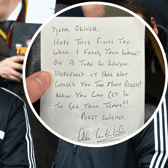 Dear Oliver,
Hope this finds you
well. I found your wallet
on a tube in London.
Hopefully it has not
caused you too much stress!
Now you can get in
to see your team!!
Best wishes,